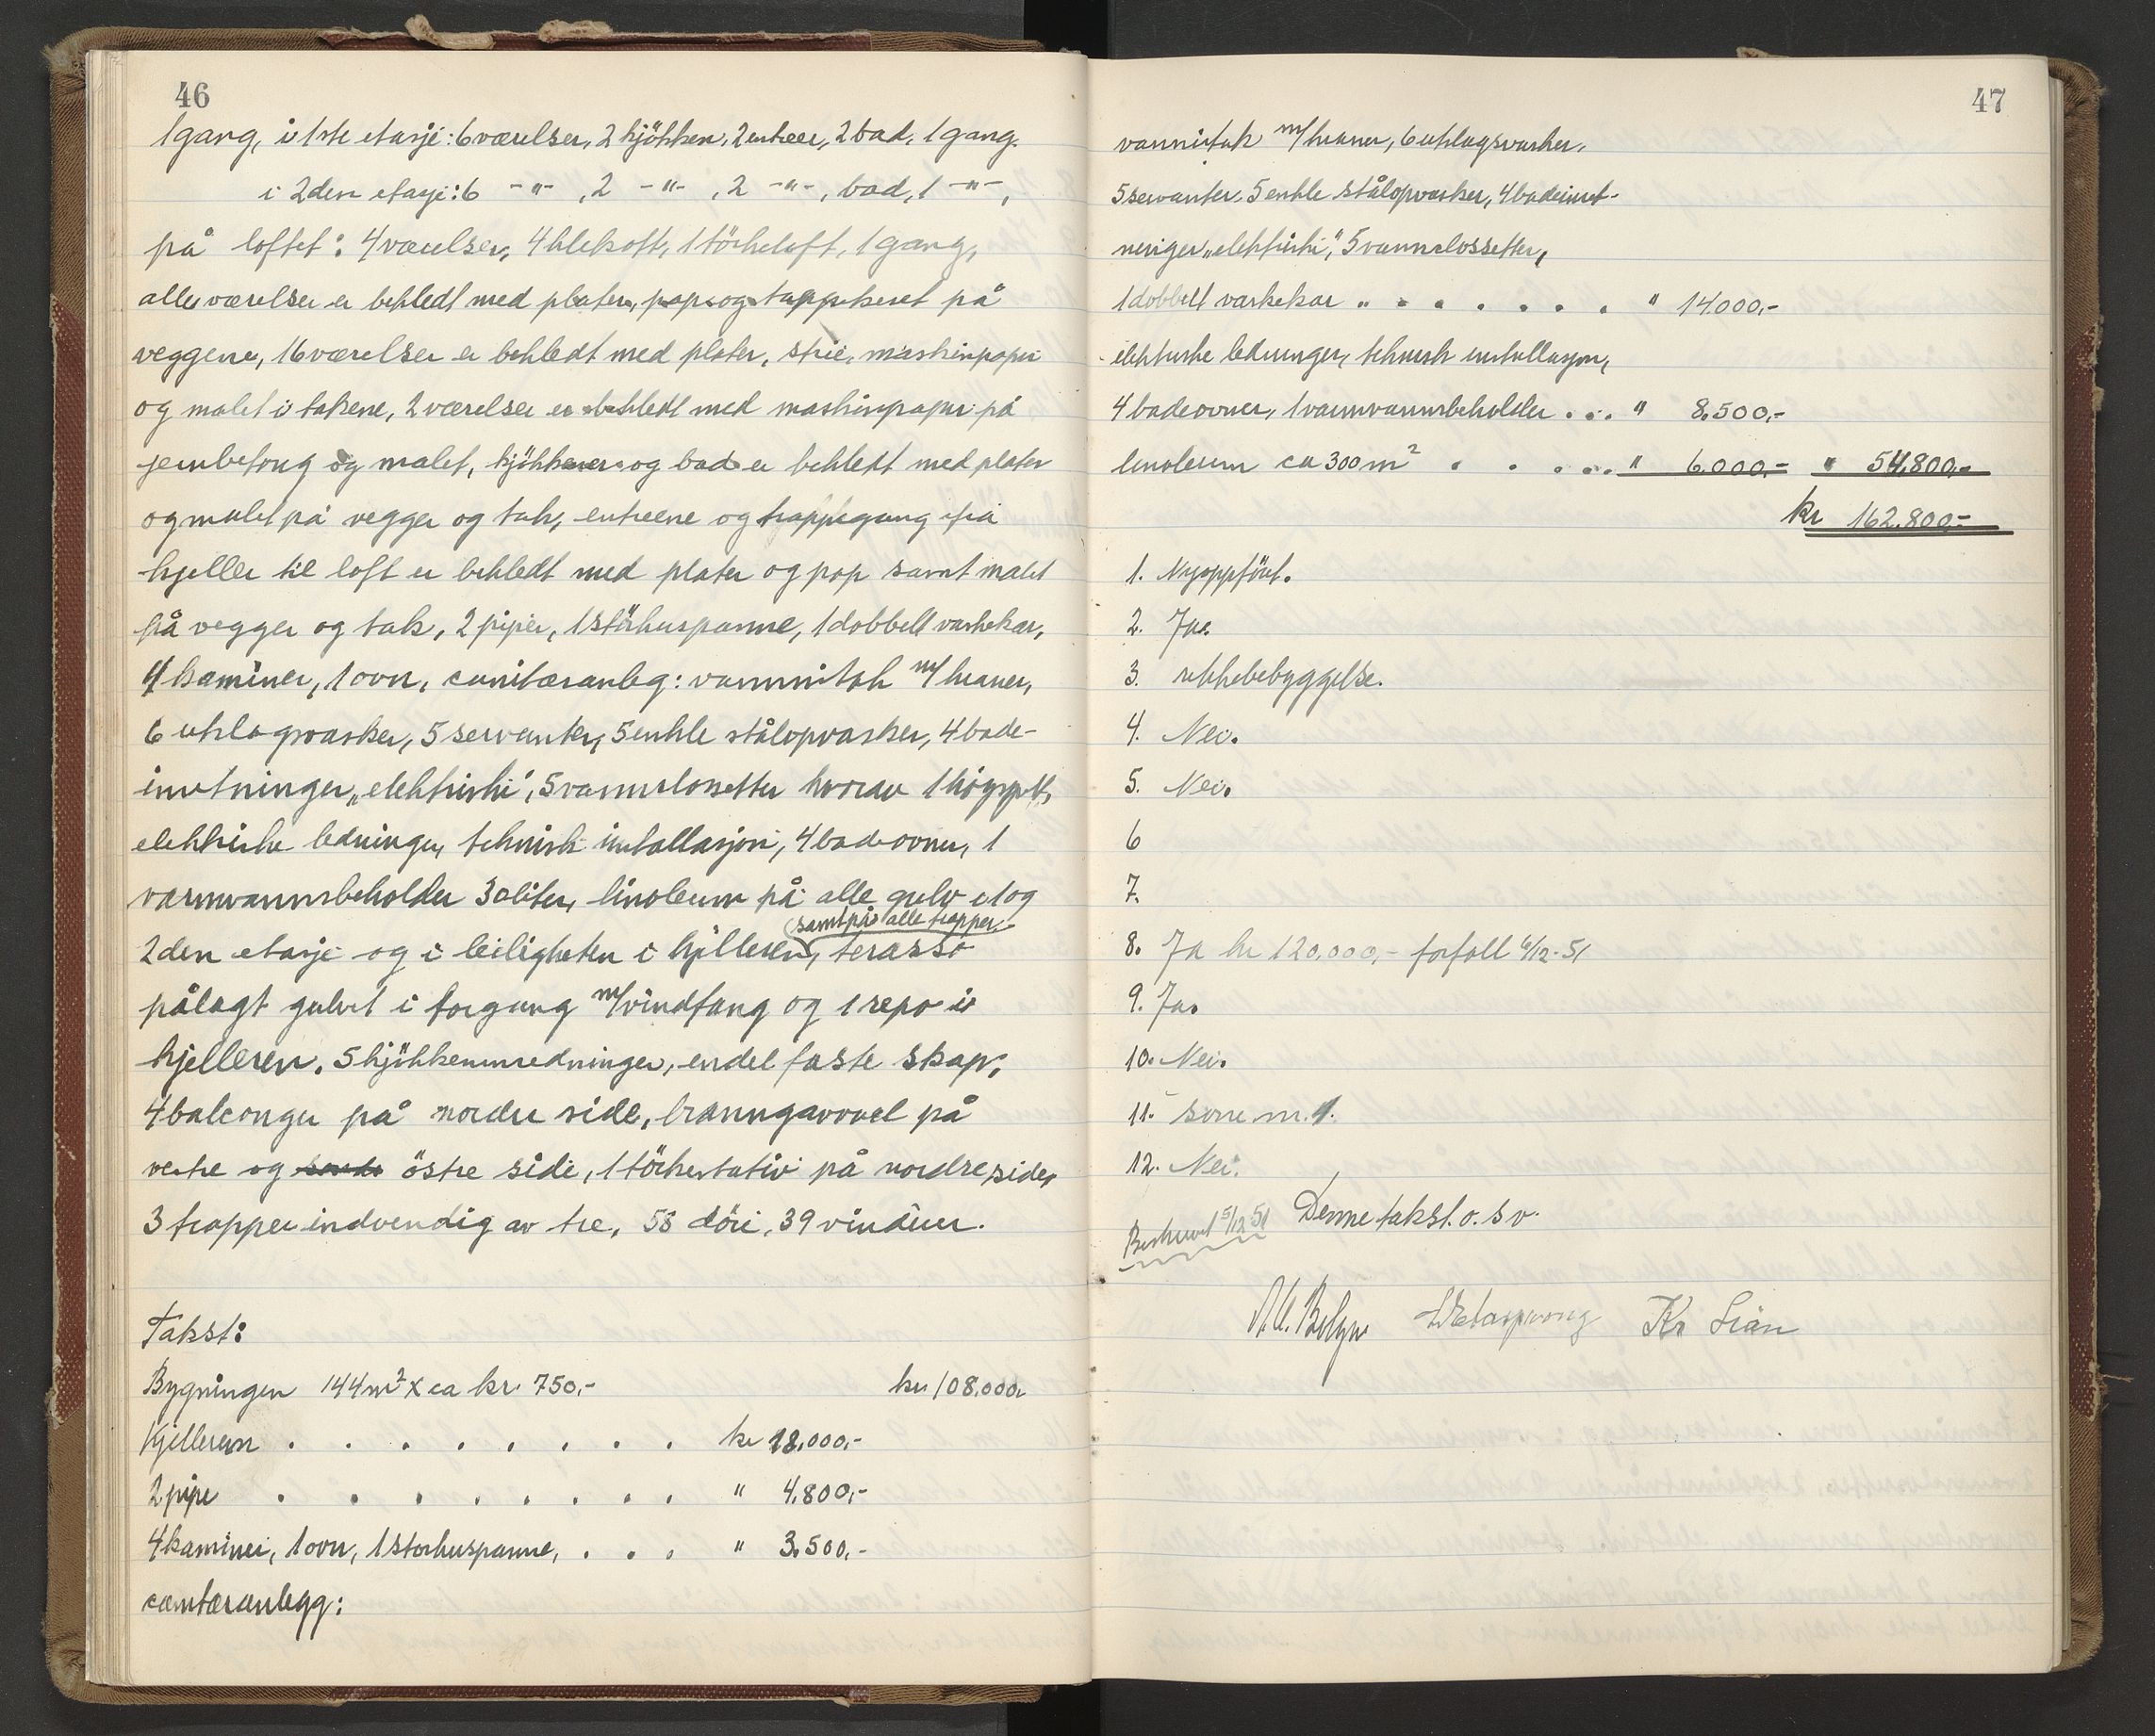 46
1 gang, i 1ste etasje: 6 værelser, 2 kjökken, 2 entreer, 2 bad, 1 gang.
i 2den etasje: 6 -"- , 2 -"- , 2 -"-, bad, 1 -"-,
på loftet: 4 værelser, 4 klekott, 1 törkeloft, 1 gang,
alle værelser er bekledt med plater, pap og tappeseret på
veggene, 16 værelser er bekledt med plater, strie, maskinpapir
og malet i takene, 2 værelser er bekledt med maskinpapir på
jernbetong og malet, kjökkener og bad er bekledt med plater
og malet på vegger og tak, entreene og trappegang fra
kjeller til loft er bekledt med plater og pap samt malet
på vegger og tak, 2 piper, 1 störhuspanne, 1 dobbelt vaskekar,
4 kaminer, 1 ovn, sanitæranleg: vanninntak m/ kraner,
6 utslagsvasker, 5 servanter, 5 enkle stålopvasker, 4 bade-
inretninger „elektriske", 5 vannclossetter hvorav 1 höyspyl,
elektriske ledninger, teknisk installasjon, 4 badeovner, 1
varmvannsbeholder 30 liter, linoleum på alle gulv 1 og
(samt på alle trapper)
2den etasje og i leiligheten i kjelleren, terasso
pålagt gulvet i forgang m/ vindfang og 1 repo i
kjelleren, 5 kjökkeninredninger, endel faste skap,
4 balconger på nordre side, branngavvel på
vestre og östre side, 1 törkestativ på nordre side,
3 trapper indvendig av tre, 58 dörer, 39 vinduer.
Takst:
Bygningen 144 m² x ca kr. 750,- kr 108.000,-
Kjelleren . . . . . . . . kr 18.000,-
2 pipe . . . . . . . . " 4.800,-
4 kaminer, 1 ovn, 1 storhuspanne, . . . " 3.500,-
sanitæranlegg:
47
vanninntak m/ kraner, 6 utslagsvasker,
5 servanter, 5 enkle stålopvasker, 4 badeinret-
ninger „elektriske", 5 vannclossetter,
1 dobbelt vaskekar . . . . . . . " 14.000,-
elektriske ledninger, teknisk installasjon,
4 badeovner, 1 varmvannsbeholder . . . " 8.500,-
linoleum ca 300 m² . . . . . " 6.000,- " 54.800,-
kr 162.800,-
1. Nyoppfört.
2. Ja.
3. rekkebebyggelse.
4. Nei.
5. Nei.
6
7.
8. Ja kr 120.000,- forfall 6/12-51
9. Ja.
10. Nei.
11. sone nr. 1.
12. Nei.
Beskrevet 5/12 51 Denne takst. o. s v.
Kr Lian